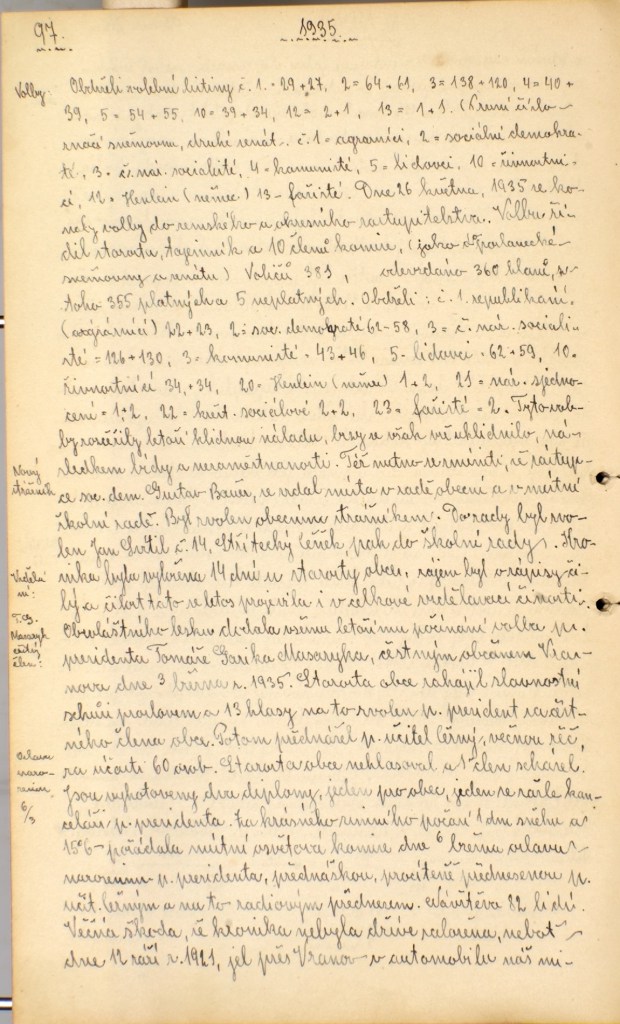 97.
1935.
Volby:
Obdrželi volební listiny č. 1. = 29+27, 2 = 64+61, 3 = 138+120, 4 = 40+
39, 5 = 54+55, 10 = 39+34, 12 = 2+1, 13 = 1+1. (První číslo
značí sněmovnu, druhé senát. č. 1 = agrárníci, 2 = sociální demokra-
té, 3 = čs. nár. socialisté, 4 = komunisté, 5 = lidovci. 10 = živnostní-
ci, 12 = Henlein (němec.) 13 - fašisté. Dne 26 května, 1935 se ko-
naly volby do zemského a okresního zastupitelstva. Volbu ří-
dil starosta, tajemník a 10 členů komise, (jako do Poslanecké
sněmovny a senátu) Voličů 381, odevzdáno 360 hlasů, z
toho 355 platných a 5 neplatných. Obdrželi: č. 1. republikáni.
(agrárníci) 22+23, 2 = soc. demokraté 62-58, 3 = č. nár. sociali-
sté = 126+130, 3 = komunisté - 43+46, 5 - lidovci - 62+59, 10.
živnostníci 34,+34, 20 = Henlein (němec) 1+2, 21 = nár. sjedno-
cení = 1+2, 22 = křest. sociálové 2+2, 23 = fašisté = 2. Tyto vol-
by rozčeřily letoší klidnou náladu, brzy se však vše uklidnilo, ná-
Nový
strážník
sledkem bídy a nezaměstnanosti. Též nutno se zmíniti, že zástup-
ce soc. dem. Gustav Bauer, se vzdal místa v radě obecní a v místní
školní radě. Byl zvolen obecním strážníkem. Do rady byl zvo-
len Jan Sútil č. 14, Střítecký Čeněk, pak do školní rady. Kro-
nika byla vyložena 14 dní u starosty obce, zájem byl o zápisy či-
Vzdělá
ní:
lý a čilost tato se letos projevila i v celkové vzdělávací činnosti.
T. G.
Masaryk
čestný
člen:
Obzvláštního lesku dodala všemu letošímu počínání volba p.
presidenta Tomáše Garika Masaryka, čestným občanem Vra-
nova dne 3 března r. 1935. Starosta obce zahájil slavnostní
schůzi proslovem a 13 hlasy na to zvolen p. president za čest-
ného člena obce. Potom přednášel p. učitel Černý, věcnou řeč,
Oslava
narozenin
6/3
za účasti 60 osob. Starosta obce nehlasoval a 1 člen scházel.
Jsou vyhotoveny dva diplomy, jeden pro obec, jeden se zašle kan-
celáři p. presidenta. Za krásného zimního počasí 1 dm sněhu a
15°6- pořádala místní osvětová komise dne 6 března oslavu
narozenin p. presidenta, přednáškou, procítěně přednesenou p.
učit. Černým a na to radiovým přednesem. Návštěva 82 lidí.
Věčná škoda, že kronika nebyla dříve založena, neboť
dne 12 září r. 1921, jel přes Vranov v automobilu náš mi-